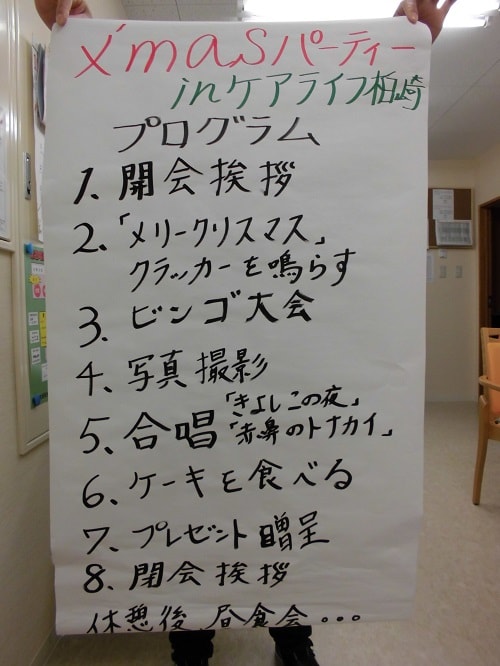 X'masパーティー
inケアライフ柏崎
プログラム
1、開会挨拶
2、「メリークリスマス」
クラッカーを鳴らす
3、ビンゴ大会
4、写真撮影
5、合唱「きよしこの夜」
「赤鼻のトナカイ」
6、ケーキを食べる
7、プレゼント贈呈
8、閉会挨拶
休憩後 昼食会・・・